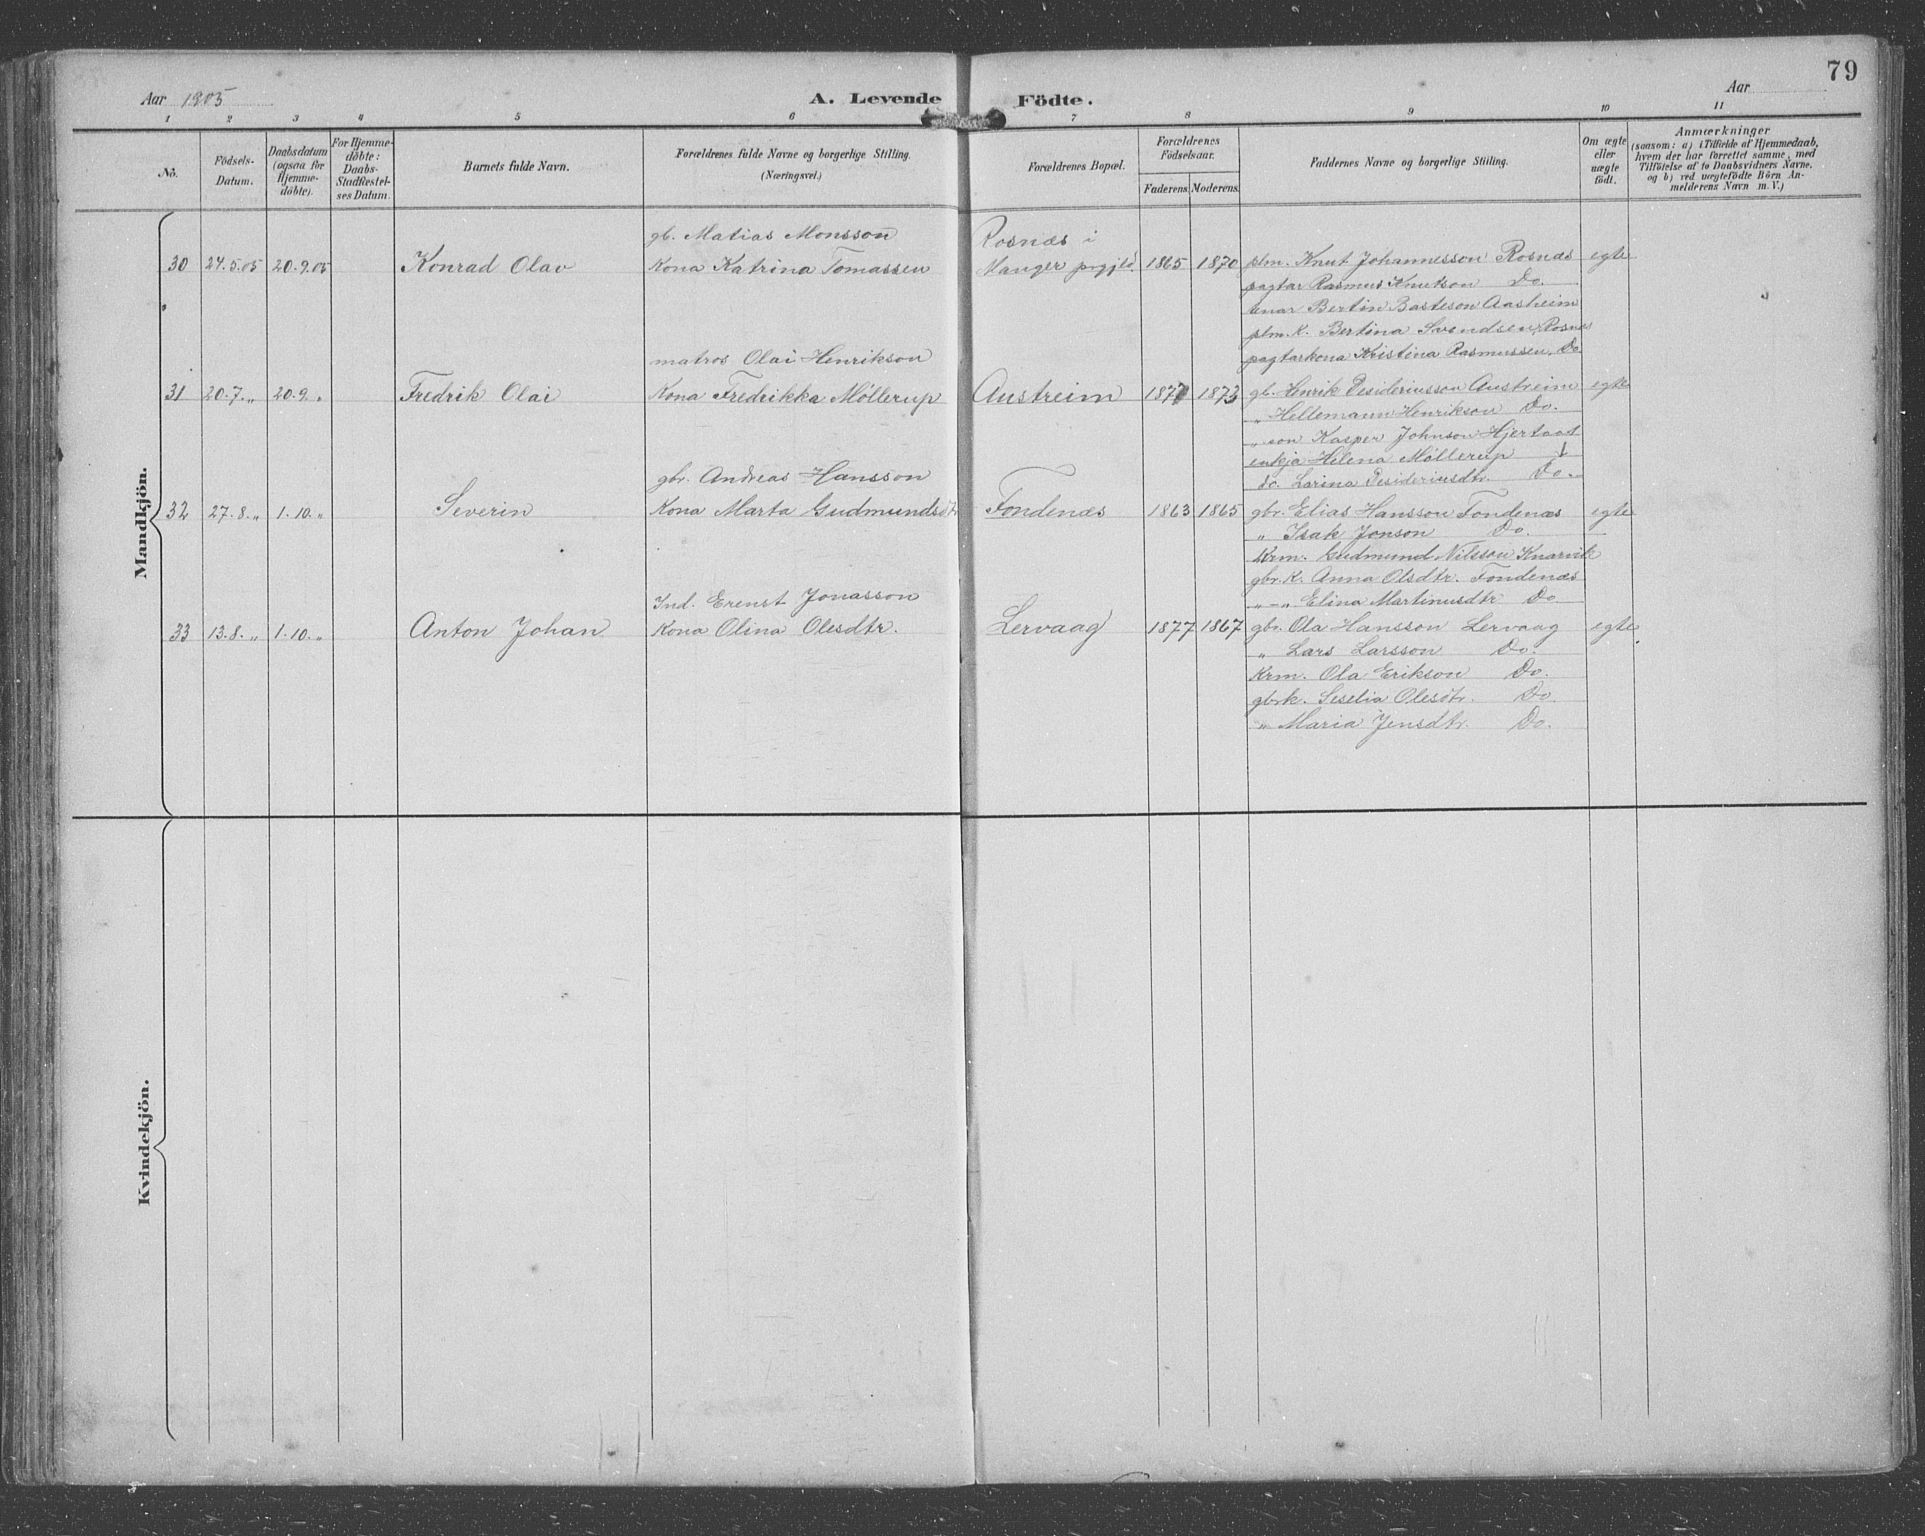 79
Aar 1905
A. Levende Födte.
Aar
1 2 3 4 5 6 7 8 9 10 11
No.
Födsels-
Datum.
Daabsdatum
(ogsaa for
Hjemme-
döbte).
For Hjemme-
döbte:
Daabs-
Stadfæstel-
ses Datum.
Barnets fulde Navn.
Forældrenes fulde Navne og borgerlige Stilling.
(Næringsvei.)
Forældrenes Bopæl.
Forældrenes
Födselsaar.
Faderens. Moderens.
Faddernes Navne og borgerlige Stilling.
Om ægte
eller
uægte
födt.
Anmærkninger
(saasom: a) i Tilfælde af Hjemmedaab,
hvem der har forrettet samme, med
Tilföielse af to Daabsvidners Navne,
og b) ved uægtefödte Börn An-
melderens Navn m. V.)
Mandkjön.
30 24.5.05 20.9.05 Konrad Olav
gb. Matias Monsson
Kona Katrina Tomassen
Rosnæs i
Manger prgjld.
1865 1870
plm. Knut Johannesson Rosnæs
pagtar Rasmus Knutson Do.
Bertin Basteson Aasheim
plm. K. Bertina Svendsen, Rosnæs
pagtarkona Kristina Rasmussen, Do
egte
31 20.7. „ 20.9. „ Fredrik Olai
matros Olai Henrikson
Kona Fredrikka Møllerup
Austreim
1873
gb. Henrik Desideriusson Austreim
„ Hellemann Henrikson Do.
„ son Kasper Johnson Hjertaas
enkja Helena Møllerup
do. Larina Desideriusdtr. Do.
egte
32 27.8. „ 1.10. „ Severin
gbr. Andreas Hansson
Kona Marta Gudmundsdtr
Fondenæs
1863 1865
gbr. Elias Hansson Fondenæs
„ Isak Jonson Do.
Krm. Gudmund Nilsson Knarvik
gbr. K. Anna Olsdtr. Fondenæs
„ - „ Elina Martinusdtr Do
egte
33 13.8. „ 1.10. „ Anton Johan
Ind. Erenst Jonasson
Kona Olina Olesdtr.
Lervaag
1877 1867
gbr. Ola Hansson Lervaag
„ Lars Larsson Do.
Krm. Ola Erikson Do.
gbrk. Seselia Olesdtr. Do.
„ Maria Jensdtr. Do.
egte.
Kvindekjön.